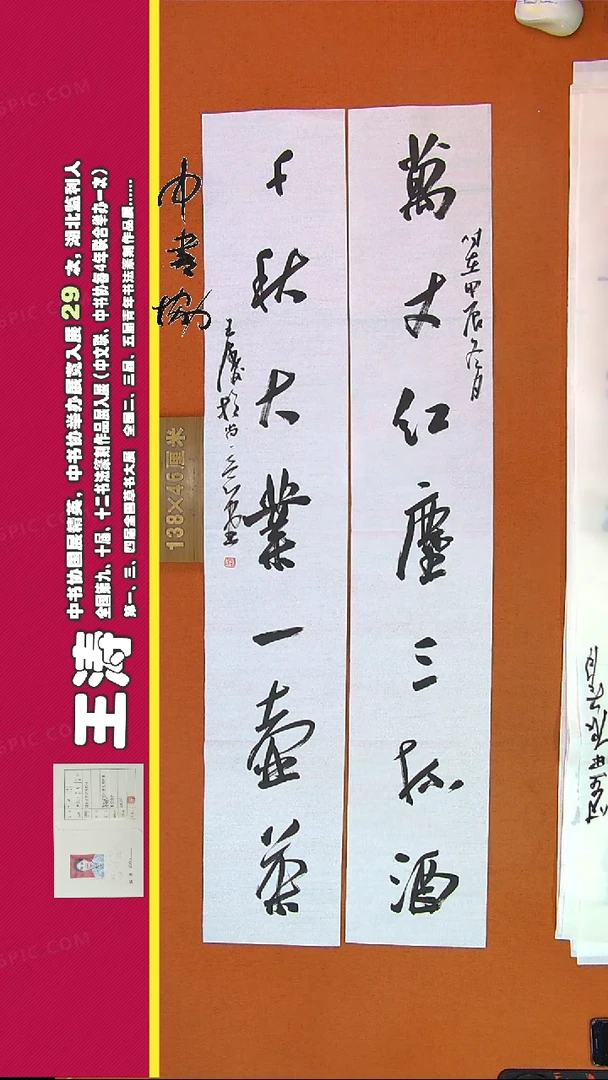 萬丈紅塵三杯酒
千秋大業一壺茶
时在甲辰冬月
中書協
138×46厘米
王涛
中书协国展精英，中书协举办展览入展 29 次，湖北监利人
全国第九、十届、十二书法篆刻作品展入展（中文联、中书协每4年联合举办一次）
第一、三、四届全国草书大展 全国二、三届、五届青年书法篆刻作品展……